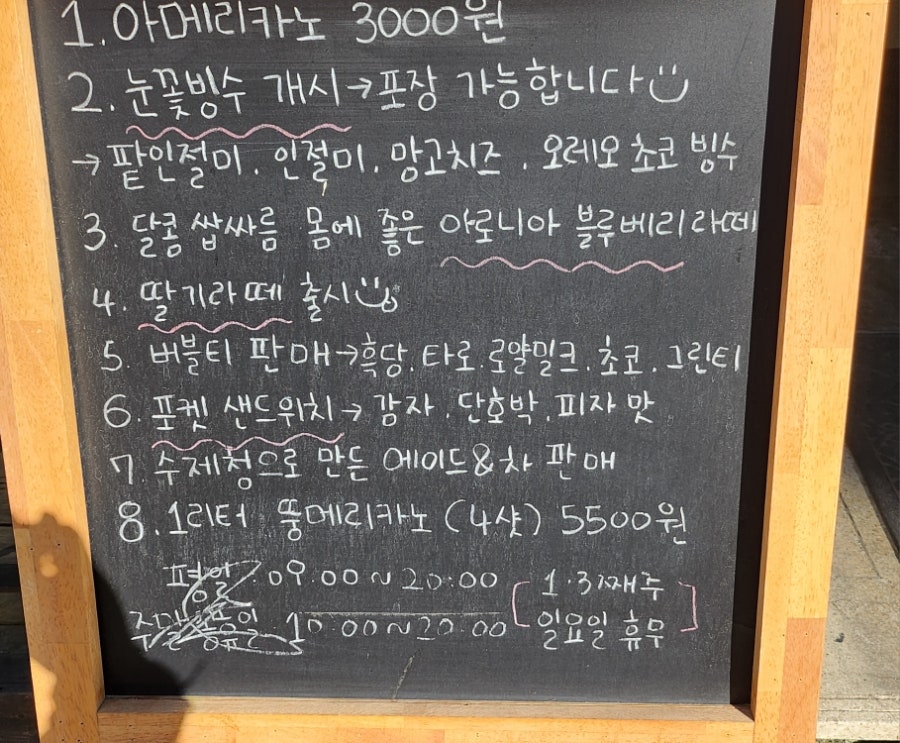 1. 아메리카노 3000원
2. 눈꽃빙수 개시→포장 가능합니다
→팥인절미. 인절미. 망고치즈. 오레오초코 빙수
3. 달콤 쌉싸름 몸에 좋은 아로니아 블루베리라떼
4. 딸기라떼 출시
5. 버블티 판매→흑당.타로.로얄밀크.초코.그린티
6. 포켓 샌드위치→감자.단호박.피자 맛
7. 수제청으로 만든 에이드&차 판매
8. 1리터 뚱메리카노 (4샷) 5500원
평일. 09.00~20:00 [1.3째주
10:00~20:00 일요일 휴무]